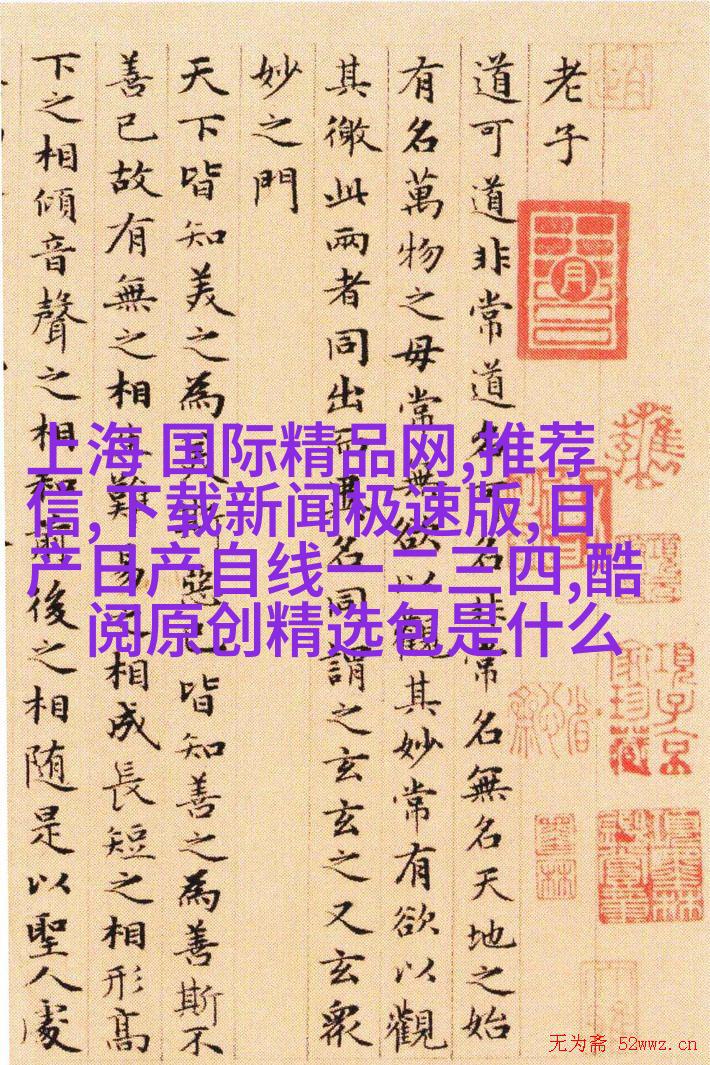 老子
道可道非常道名可名非常名無名天地之始
有名萬物之母常無欲以觀其妙常有欲以觀
其徼此兩者同出而異名同謂之玄玄之又玄衆
妙之門
天下皆知美之為美斯惡已皆知善之為善斯不
善已故有無之相生難易之相成長短之相形高
下之相傾音聲之相和前後之相随是以聖人處
上海 国际精品网,推荐
信,下载新闻极速版,日
产日产自线一二三四,酷
阅原创精选包是什么
无为斋 52wwz.cn